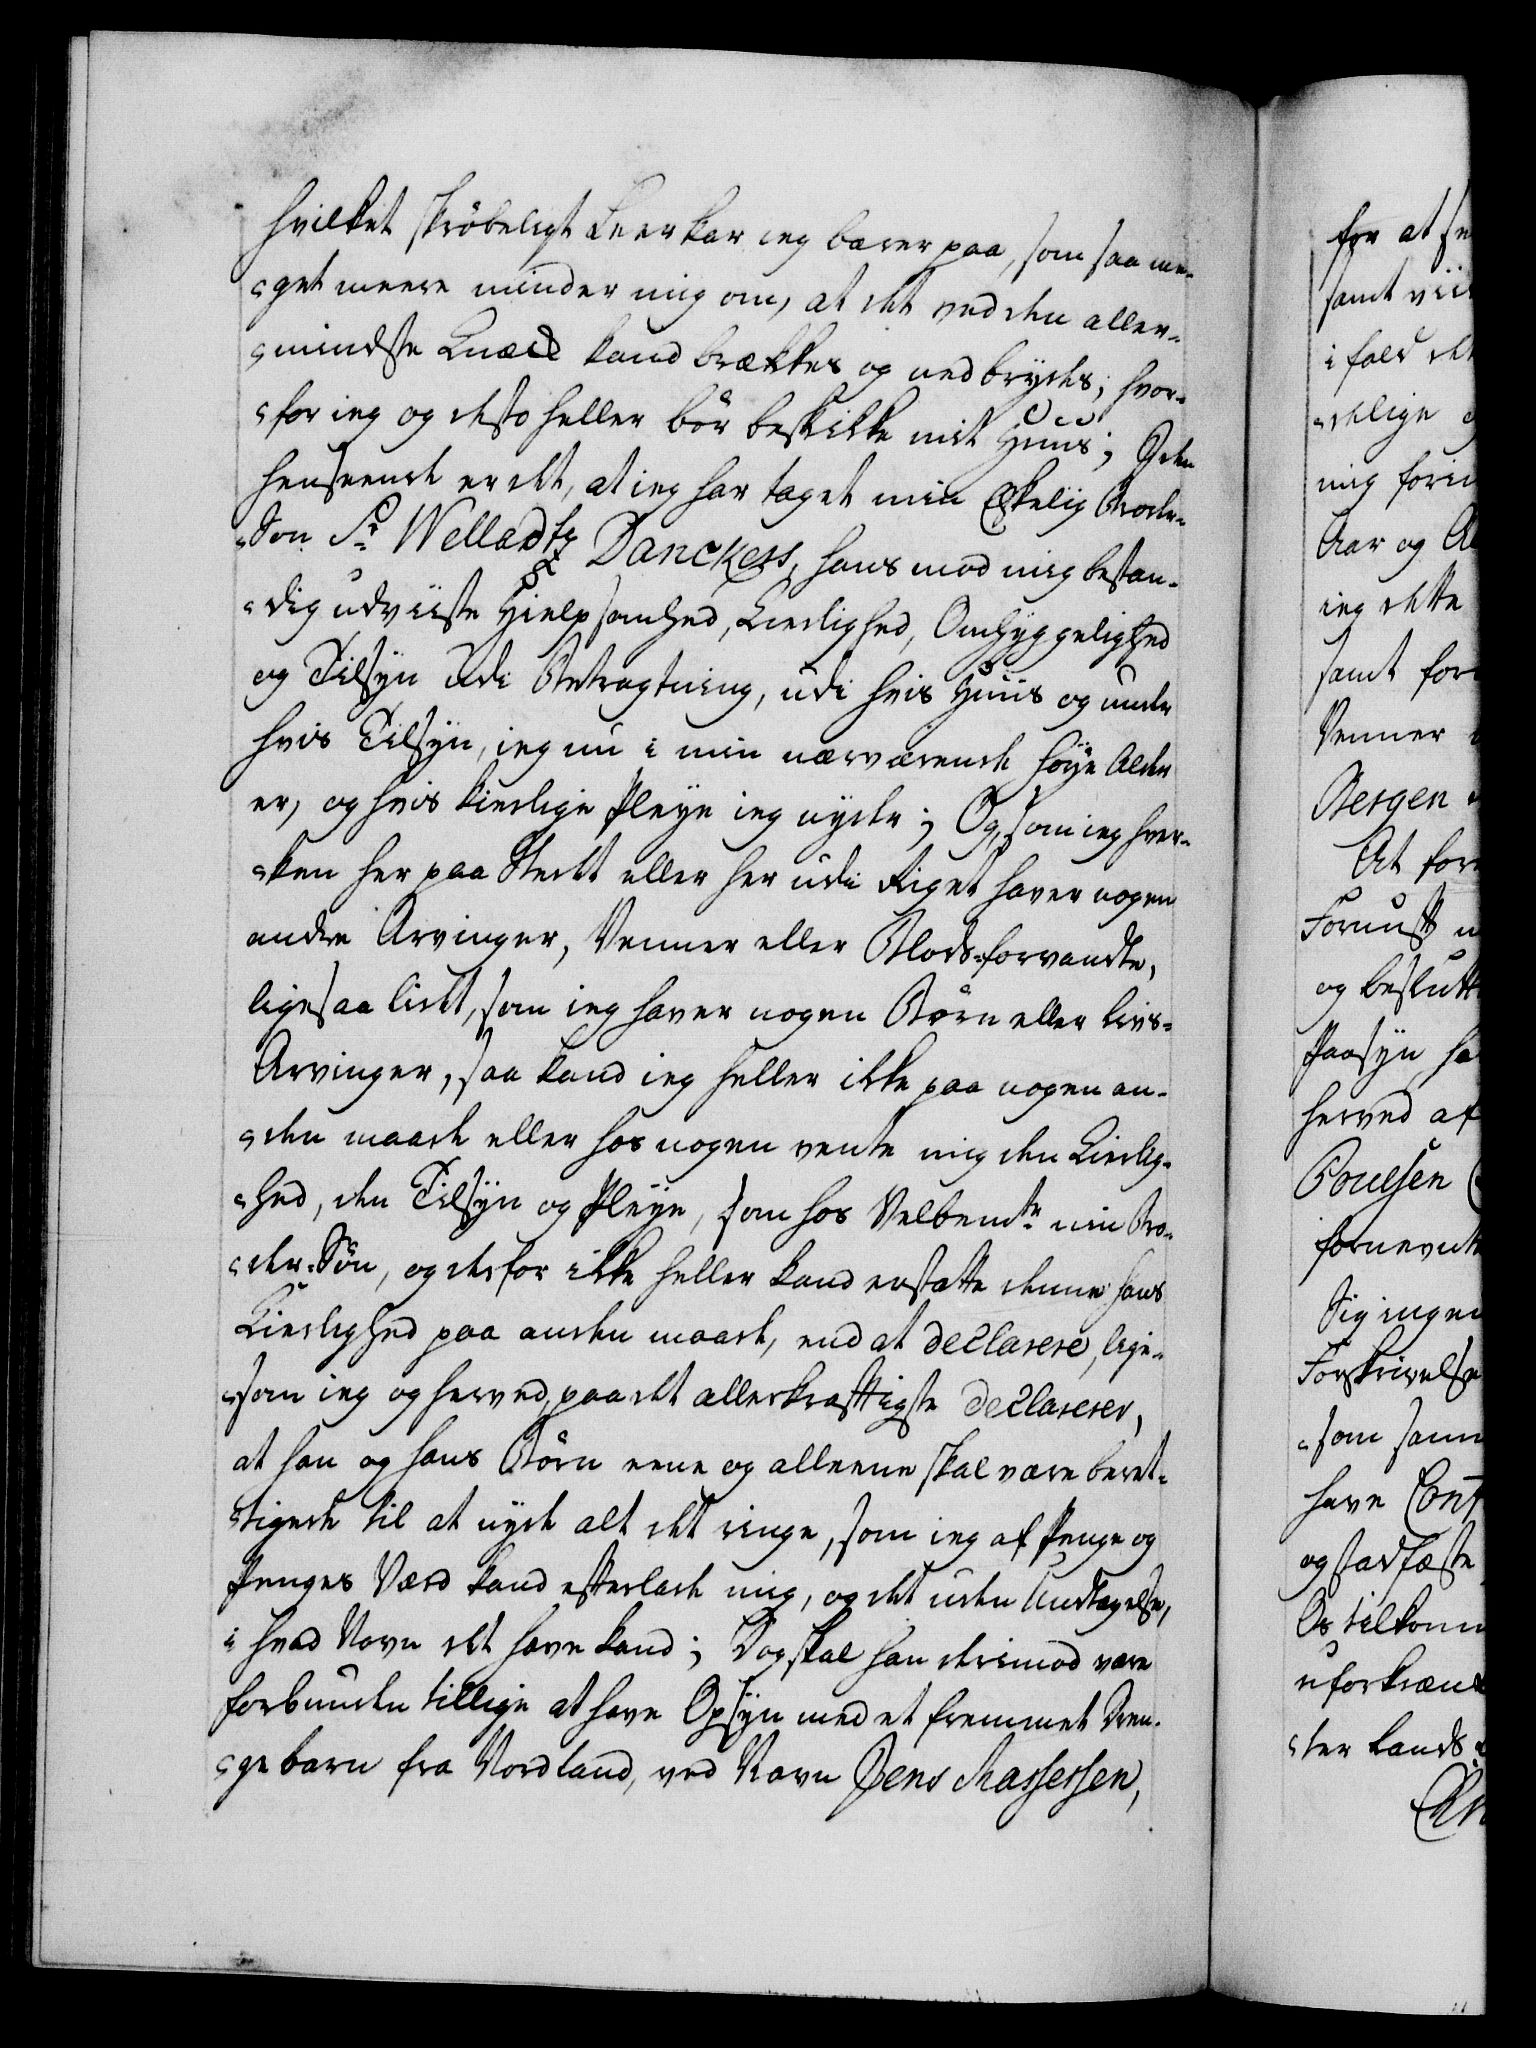 hvilket skröbeligt Leerkar jeg bærer paa, som saa me-
get meere minder mig om, at det ved den aller-
mindste Qnæd kand brækkes og nedbrydes; hvor-
for jeg og desto heller bör beskikke mit Huus; I den
henseende er det, at jeg har taget min Ægelig Broder-
Son Sr Wellardtz Danckers, hans mod mig bestan-
dig udviiste Hielpsomhed, Kierlighed, Omhyggelighed
og Tilsÿn udi Betragtning, udi hvis Huus og under
hvis Tilsÿn, jeg nu i min nærværende höÿe Alder
er, og hvis kierlige Pleÿe jeg nyder; Og, som jeg hver-
ken her paa Stedet eller her udi Riget haver nogen
andre Arvinger, Venner eller Blods-forvandte,
ligesaa lidet, som jeg haver nogen Börn eller Livs-
Arvinger, saa kand jeg heller ikke paa nogen an-
den maade eller hos nogen vente mig den Kierlig-
hed, den Tilsÿn og Pleÿe, som hos Velbemte min Bro-
der-Sön, og derfor ikke heller kand erstatte denne hans
Kierlighed paa anden maade, end at declarere, lige-
som jeg og herved, paa det allerkrafftigste declarerer,
at han og hans Börn eene og alleene skal være beret-
tigede til at nyde alt det ringe, som jeg af Penge og
Penges Værd kand efterlade mig, og det uden Undtagelse,
i hvad Navn det have kand; Dog skal han derimod være
forbunden tillige at have Opsÿn med et fremmet Dren-
gebarn fra Nordland, ved Navn Jens Massessen,
for at
samt
i fald det
delige
mig
Aar og
jeg dette
samt for
Venner
Bergen
At for
Fornufft
og beslutt
Paasÿn
herved af
Poulsen
fornevnte
Sig ingen
Forskrivelse
som
have
og stadfæste
Os tilkom
uforkræn
ter Lands